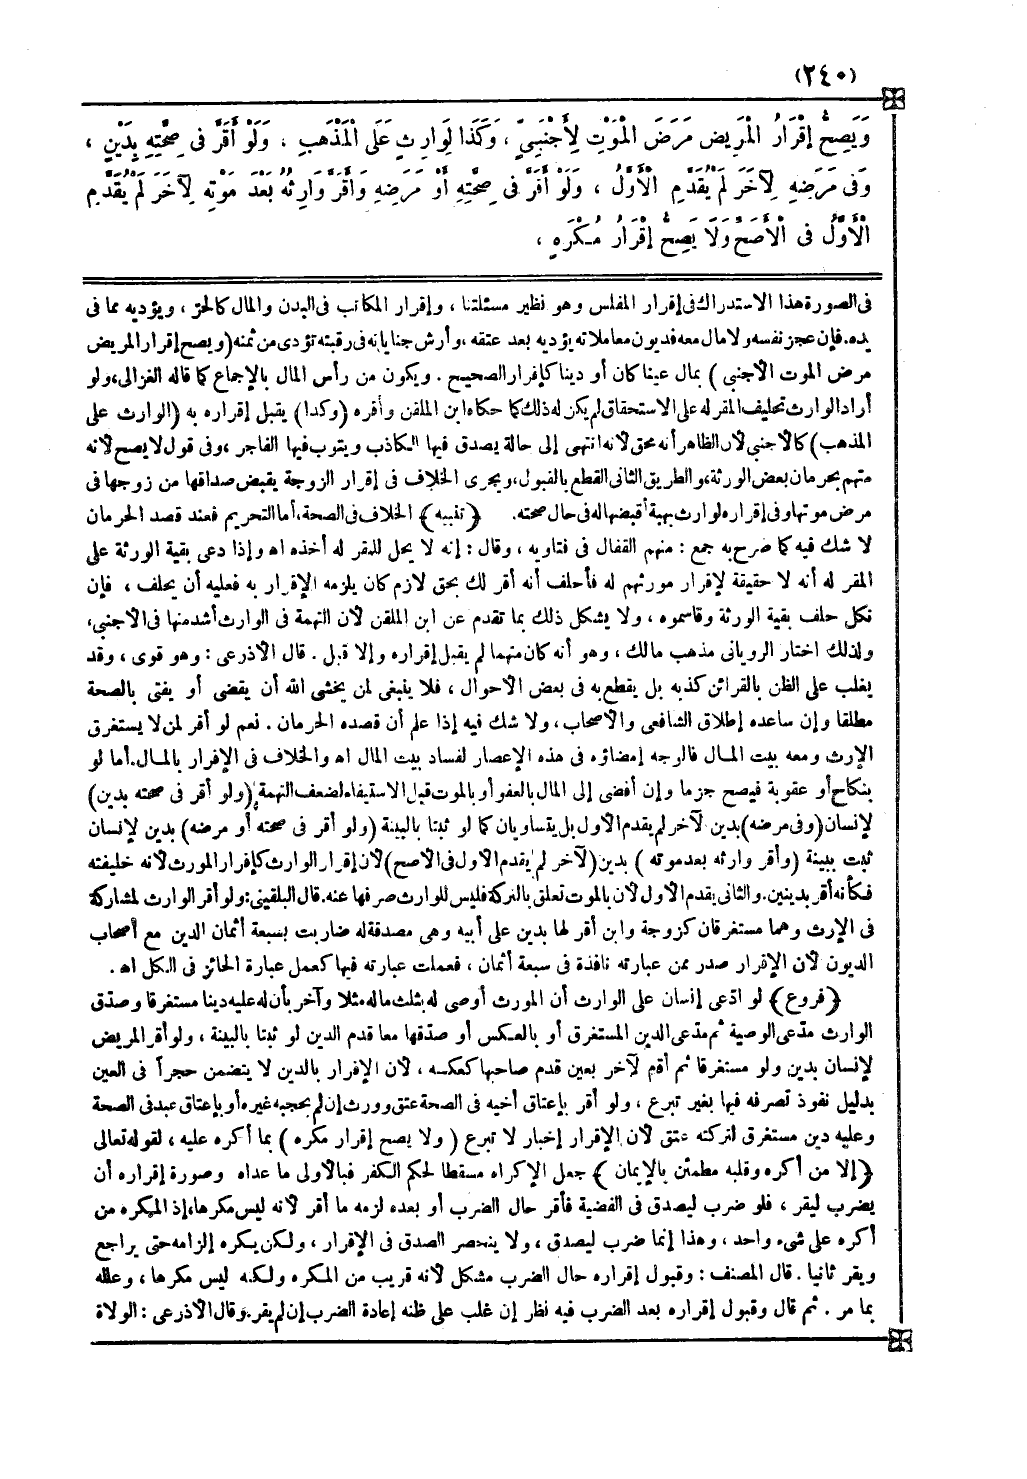 (٢٤٠)
وَيَصِحُّ إِقْرَارُ الْمَرِيضِ مَرَضَ الْمَوْتِ لِأَجْنَبِيٍّ ، وَكَذَا لِوَارِثٍ عَلَى الْمَذْهَبِ ، وَلَوْ أَقَرَّ فى صِحَّتِهِ بِدَيْنٍ ،
وَفى مَرَضِهِ لِآخَرَ لَمْ يُقَدَّمِ الْأَوَّلُ ، وَلَوْ أَقَرَّ فى صِحَّتِهِ أَوْ مَرَضِهِ وَأَقَرَّ وَارِثُهُ بَعْدَ مَوْتِهِ لِآخَرَ لَمْ يُقَدَّمِ
الْأَوَّلُ فى الْأَصَحِّ وَلَا يَصِحُّ إِقْرَارُ مُكْرَهٍ ،
فى الصورة هذا الاستدراك فى إقرار المفلس وهو نظير مسئلتنا ، وإقرار المكاتب فى البدن والمال كالحرّ ، ويؤديه مما فى
يده . فإن عجز نفسه ولا مال معه فديون معاملاته يؤديه بعد عتقه ، وأرش جناياته فى رقبته تؤدى من ثمنه (ويصح إقرار المريض
مرض الموت الأجنبى ) بمال عينا كان أو دينا كإقرار الصحيح . ويكون من رأس المال بالإجماع كما قاله الغزالى ، ولو
أراد الوارث تحليف المقر له على الاستحقاق لم يكن له ذلك كما حكاه ابن الملقن وأقره (وكذا) يقبل إقراره به (الوارث على
المذهب) كالأجنبى لأن الظاهر أنه محق لأنه انتهى إلى حالة يصدق فيها الكاذب ويتوب فيها الفاجر ، وفى قول لا يصح لأنه
متهم بحرمان بعض الورثة ، والطريق الثانى القطع بالقبول ، ويجرى الخلاف فى إقرار الزوجة بقبض صداقها من زوجها فى
مرض موتها وفى إقراره لوارث بهبة أقبضها له فى حال صحته . ﴿ تنبيه ﴾ الخلاف فى الصحة ، أما التحريم فعند قصد الحرمان
لا شك فيه كما صرح به جمع : منهم القفال فى فتاويه ، وقال : إنه لا يحل للمقر له أخذه اه وإذا دعى بقية الورثة على
المقر له أنه لا حقيقة لإقرار مورثهم له فأحلف أنه أقر لك بحق لازم كان يلزمه الإقرار به فعليه أن يحلف ، فإن
نكل حلف بقية الورثة وقاسموه ، ولا يشكل ذلك بما تقدم عن ابن الملقن لأن التهمة فى الوارث أشد منها فى الأجنبى ،
ولذلك اختار الرويانى مذهب مالك ، وهو أنه كان متهما لم يقبل إقراره وإلا قبل . قال الأذرعى : وهو قوى ، وقد
يغلب على الظن بالقرائن كذبه بل يقطع به فى بعض الأحوال ، فلا ينبغى لمن يخشى الله أن يقضى أو يفتى بالصحة
مطلقا وإن ساعده إطلاق الشافعى والأصحاب ، ولا شك فيه إذا علم أن قصده الحرمان . نعم لو أقر لمن لا يستغرق
الإرث ومعه بيت المال فالوجه إمضاؤه فى هذه الإعصار لفساد بيت المال اه والخلاف فى الإقرار بالمال . أما لو
بنكاح أو عقوبة فيصح جزما وإن أفضى إلى المال بالعفو أو بالموت قبل الاستيفاء لضعف التهمة (ولو أقر فى صحته بدين)
لإنسان (وفى مرضه) بدين لآخر لم يقدم الأول بل يتساويان كما لو ثبتا بالبينة (ولو أقر فى صحته أو مرضه) بدين لإنسان
ثبت ببينة (وأقر وارثه بعد موته ) بدين (لآخر لم يقدم الأول فى الأصح) لأن إقرار الوارث كإقرار المورث لأنه خليفته
فكأنه أقر بدينين . والثانى يقدم الأول لأن بالموت تعلق بالتركة فليس للوارث صرفها عنه . قال البلقينى : ولو أقر الوارث لمشاركة
فى الإرث وهما مستغرقان كزوجة وابن أقر لها بدين على أبيه وهى مصدقة له ضاربت بسبعة أثمان الدين مع أصحاب
الديون لأن الإقرار صدر ممن عبارته نافذة فى سبعة أثمان ، فعملت عبارته فيها كعمل عبارة الحائز فى الكل اه .
﴿ فروع ﴾ لو ادّعى إنسان على الوارث أن المورث أوصى له بثلث ماله مثلا وآخر بأن له عليه دينا مستغرقا وصدّق
الوارث مدّعى الوصية ثم مدّعى الدين المستغرق أو بالعكس أو صدّقها معا قدم الدين لو ثبتا بالبينة ، ولو أقر المريض
لإنسان بدين ولو مستغرقا ثم أقر لآخر بعين قدم صاحبها كعكسه ، لأن الإقرار بالدين لا يتضمن حجرا فى العين
بدليل نفوذ تصرفه فيها بغير تبرع ، ولو أقر بإعتاق أخيه فى الصحة عتق وورث إن لم يحجبه غيره أو بإعتاق عبد فى الصحة
وعليه دين مستغرق لتركته عتق لأن الإقرار إخبار لا تبرع ( ولا يصح إقرار مكره ) بما أكره عليه ، لقوله تعالى
﴿ إلا من أكره وقلبه مطمئن بالإيمان ﴾ جعل الإكراه مسقطا لحكم الكفر فبالأولى ما عداه وصورة إقراره أن
يضرب ليقر ، فلو ضرب ليصدق فى القضية فأقر حال الضرب أو بعده لزمه ما أقر لأنه ليس مكرها ، إذ المكره من
أكره على شىء واحد ، وهذا إنما ضرب ليصدق ، ولا ينحصر الصدق فى الإقرار ، ولكن يكره إلزامه حتى يراجع
ويقر ثانيا . قال المصنف : وقبول إقراره حال الضرب مشكل لأنه قريب من المكره ولكنه ليس مكرها ، وعلله
بما مر . ثم قال وقبول إقراره بعد الضرب فيه نظر إن غلب على ظنه إعادة الضرب إن لم يقر . وقال الأذرعى : الولاة